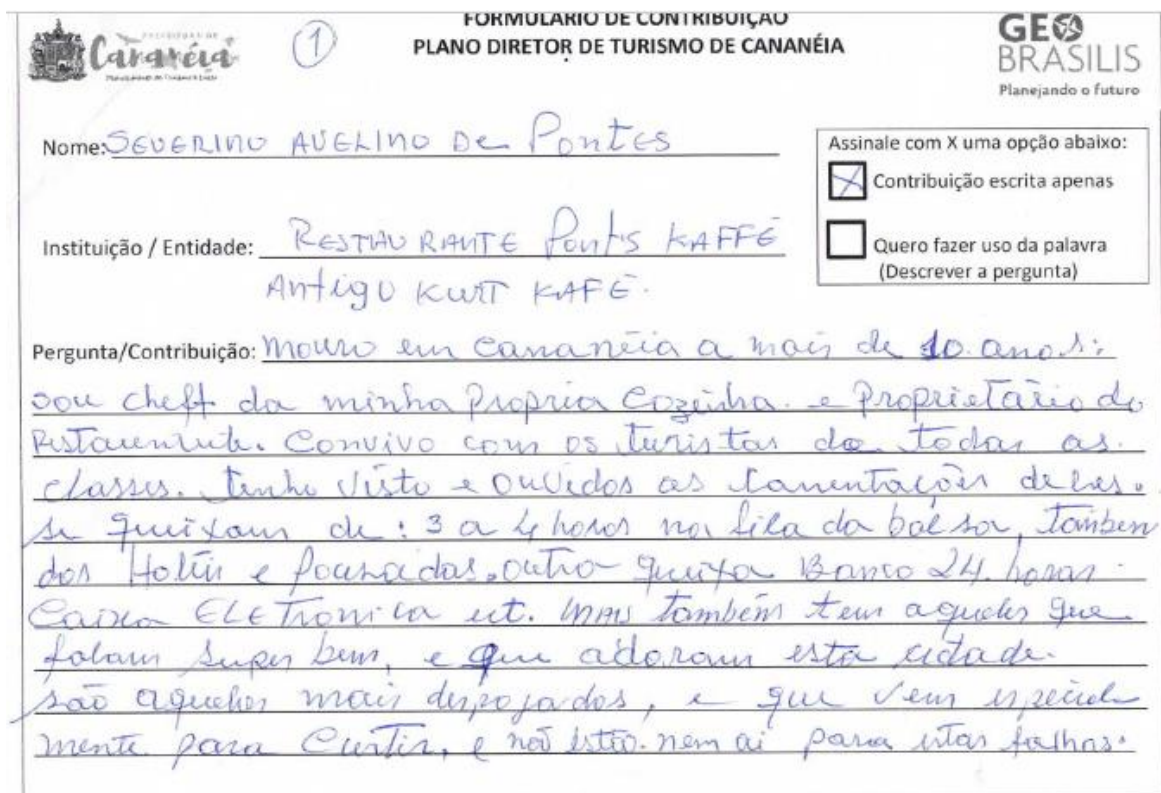 PREFEITURA DE
Cananéia
1
FORMULÁRIO DE CONTRIBUIÇÃO
PLANO DIRETOR DE TURISMO DE CANANÉIA
GEO
BRASILIS
Planejando o futuro
Nome: SEVERINO AVELINO De Pontes
Assinale com X uma opção abaixo:
X Contribuição escrita apenas
Instituição / Entidade: RESTAURANTE Ponts KAFFÉ
Antigo KURT KAFÉ.
Quero fazer uso da palavra
(Descrever a pergunta)
Pergunta/Contribuição: mouro em Cananéia a mais de 10 anos:
sou cheff da minha Propria Cozinha. e Proprietário do
Restaurante. Convivo com os turistas de todas as
classes. tenho visto e ouvidos as lamentações deles.
se queixam de: 3 a 4 horas na fila da balsa, também
dos Hotéis e Pousadas. outra queixa Banco 24. horas.
Caixa ELETronica ect. mas também tem aqueles que
falam super bem, e que adoram esta cidade.
são aqueles mais despojados, e que vem especial
mente para Curtir, e não estão nem ai para estas falhas.